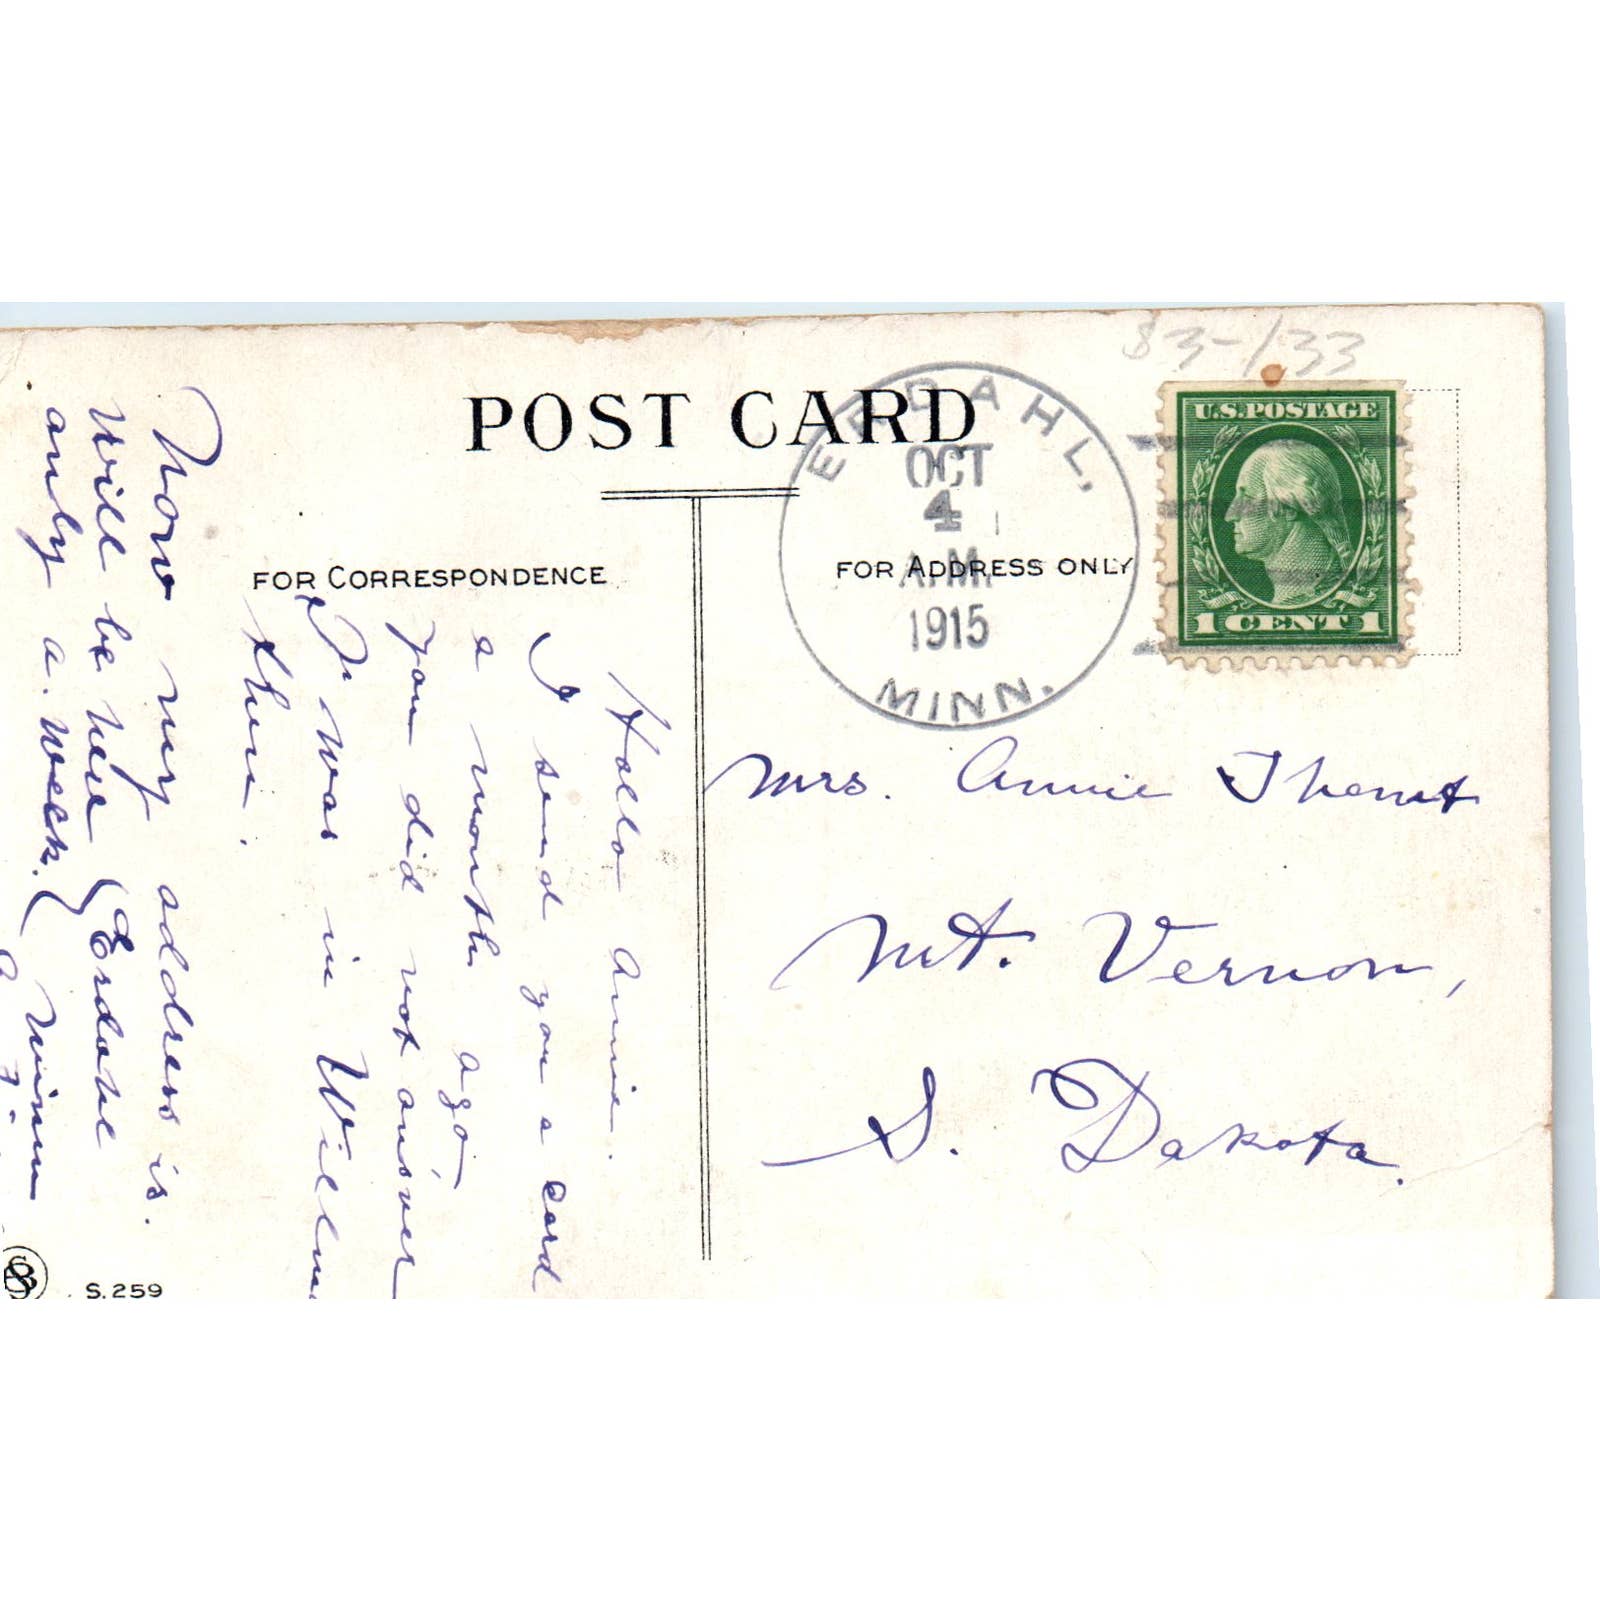 POST CARD
FOR CORRESPONDENCE
FOR ADDRESS ONLY
ERDAHL,
OCT
4
A.M.
1915
MINN.
83-133
U.S.POSTAGE
1 CENT 1
Mrs. Annie
Mt. Vernon,
S. Dakota.
Hallo Annie.
I send you a card
a month ago,
you did not answer
I was in
then.
Now my address is.
Will be here
only a week. Minn
S.259